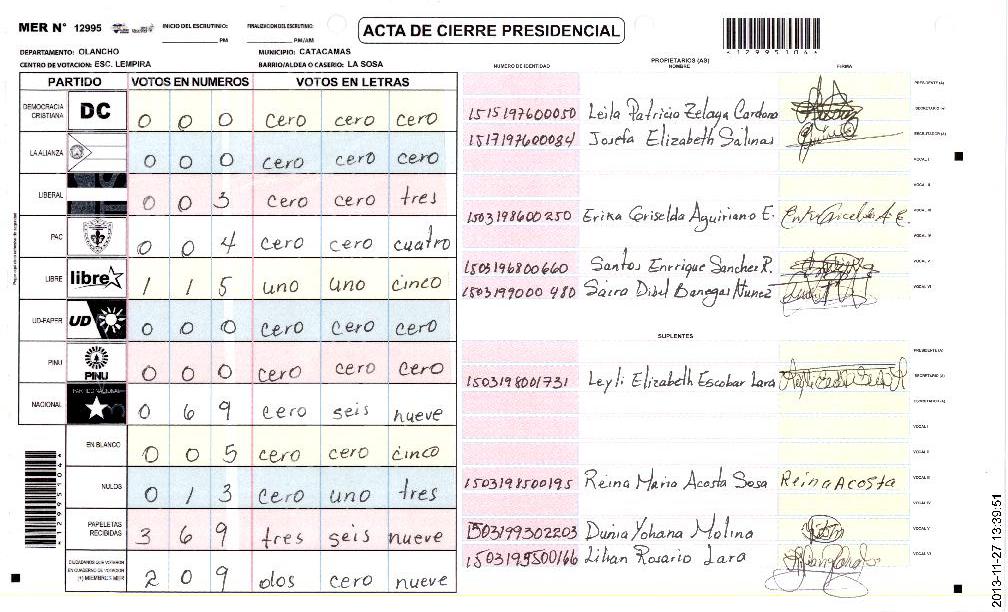 MER N° 12995
INICIO DEL ESCRUTINIO:
PM
FINALIZACION DEL ESCRUTINIO:
PM/AM
ACTA DE CIERRE PRESIDENCIAL
*12995104*
DEPARTAMENTO: OLANCHO
MUNICIPIO: CATACAMAS
CENTRO DE VOTACION: ESC. LEMPIRA
BARRIO/ALDEA O CASERIO: LA SOSA
PARTIDO VOTOS EN NUMEROS VOTOS EN LETRAS
DEMOCRACIA CRISTIANA DC 0 0 0 cero cero cero
LA ALIANZA 0 0 0 cero cero cero
LIBERAL 0 0 3 cero cero tres
PAC 0 0 4 cero cero cuatro
LIBRE libre 1 1 5 uno uno cinco
UD-FAPER UD 0 0 0 cero cero cero
PINU PINU 0 0 0 cero cero cero
NACIONAL PARTIDO NACIONAL 0 6 9 cero seis nueve
EN BLANCO 0 0 5 cero cero cinco
NULOS 0 1 3 cero uno tres
PAPELETAS RECIBIDAS 3 6 9 tres seis nueve
CIUDADANOS QUE VOTARON EN CUADERNO DE VOTACION (+) MIEMBROS MER 2 0 9 dos cero nueve
*12995104*
NUMERO DE IDENTIDAD
PROPIETARIOS (AS)
NOMBRE
FIRMA
PRESIDENTE (A)
1515197600050 Leila Patricia Zelaya Cardona SECRETARIO (A)
1517197600084 Josefa Elizabeth Salinas ESCRUTADOR (A)
VOCAL I
VOCAL II
1503198600250 Erika Griselda Aguiriano E. VOCAL III
VOCAL IV
1503196800660 Santos Enrrique Sanchez R. VOCAL V
1503199000480 Saira Didel Banegas Nunez VOCAL VI
SUPLENTES
PRESIDENTE (A)
1503198001731 Leyli Elizabeth Escobar Lara SECRETARIO (A)
ESCRUTADOR (A)
VOCAL I
VOCAL II
1503198500195 Reina Maria Acosta Sosa Reina Acosta VOCAL III
VOCAL IV
1503199302203 Dunia Yohana Molina VOCAL V
1503199500166 Lilian Rosario Lara VOCAL VI
2013-11-27 13:39:51